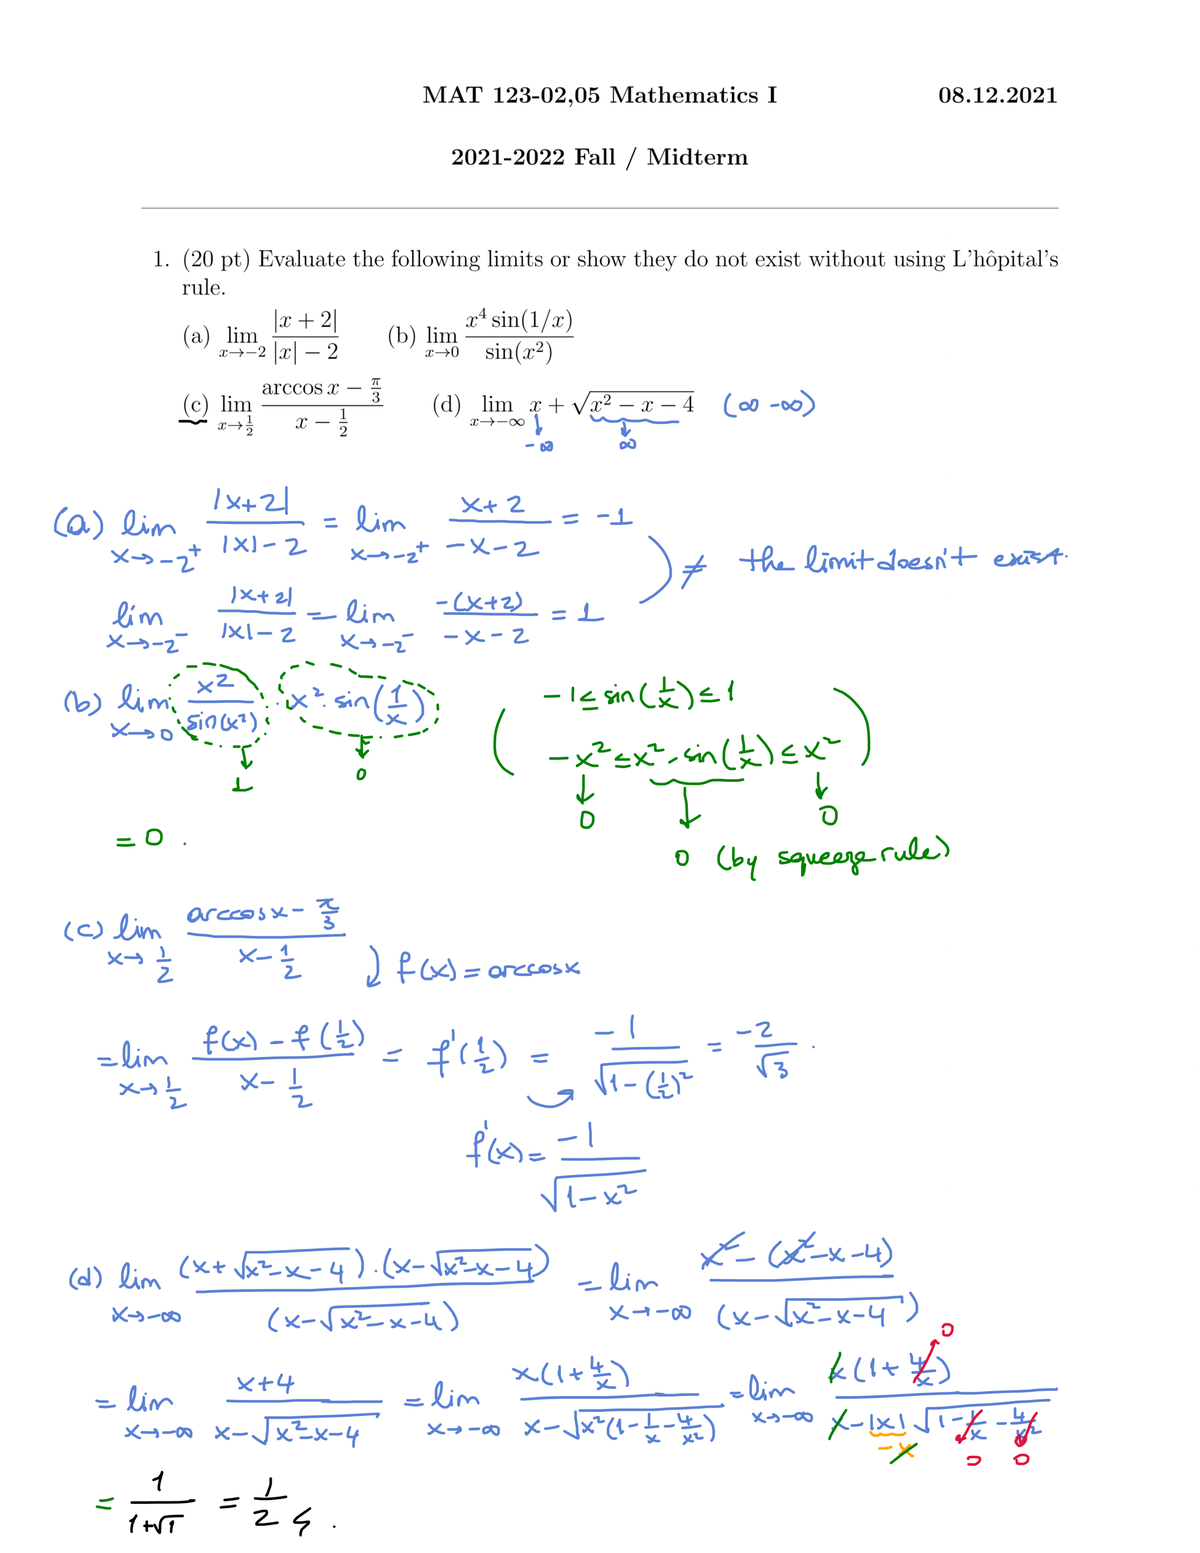 MAT 123-02,05 Mathematics I 08.12.2021
2021-2022 Fall / Midterm
1. (20 pt) Evaluate the following limits or show they do not exist without using L'hôpital's
rule.
(a) lim_{x→−2} |x + 2| / (|x| − 2) (b) lim_{x→0} x⁴ sin(1/x) / sin(x²)
(c) lim_{x→1/2} (arccos x − π/3) / (x − 1/2) (d) lim_{x→−∞} x + √(x² − x − 4) (∞ -∞)
↓ -∞ ↓ ∞
(a) lim_{x→-2⁺} |x+2| / (|x|-2) = lim_{x→-2⁺} (x+2) / (-x-2) = -1
≠ the limit doesn't exist.
lim_{x→-2⁻} |x+2| / (|x|-2) = lim_{x→-2⁻} -(x+2) / (-x-2) = 1
(b) lim_{x→0} x² / sin(x²) · x² · sin(1/x)
↓ 1 ↓ 0
(-1 ≤ sin(1/x) ≤ 1
-x² ≤ x² · sin(1/x) ≤ x²)
↓ 0 ↓ ↓ 0
= 0 .
0 (by squeeze rule)
(c) lim_{x→1/2} (arccosx - π/3) / (x - 1/2)
f(x) = arccosx
= lim_{x→1/2} (f(x) - f(1/2)) / (x - 1/2) = f'(1/2) = -1 / √(1-(1/2)²) = -2/√3 .
f'(x) = -1 / √(1-x²)
(d) lim_{x→-∞} (x+√(x²-x-4)).(x-√(x²-x-4)) / (x-√(x²-x-4)) = lim_{x→-∞} (x² - (x²-x-4)) / (x-√(x²-x-4))
= lim_{x→-∞} (x+4) / (x-√(x²-x-4)) = lim_{x→-∞} x(1+4/x) / (x-√(x²(1-1/x-4/x²))) = lim_{x→-∞} x(1+4/x) / (x-|x|√(1-1/x-4/x²))
0 -x 0 0
= 1 / (1+√1) = 1/2 .